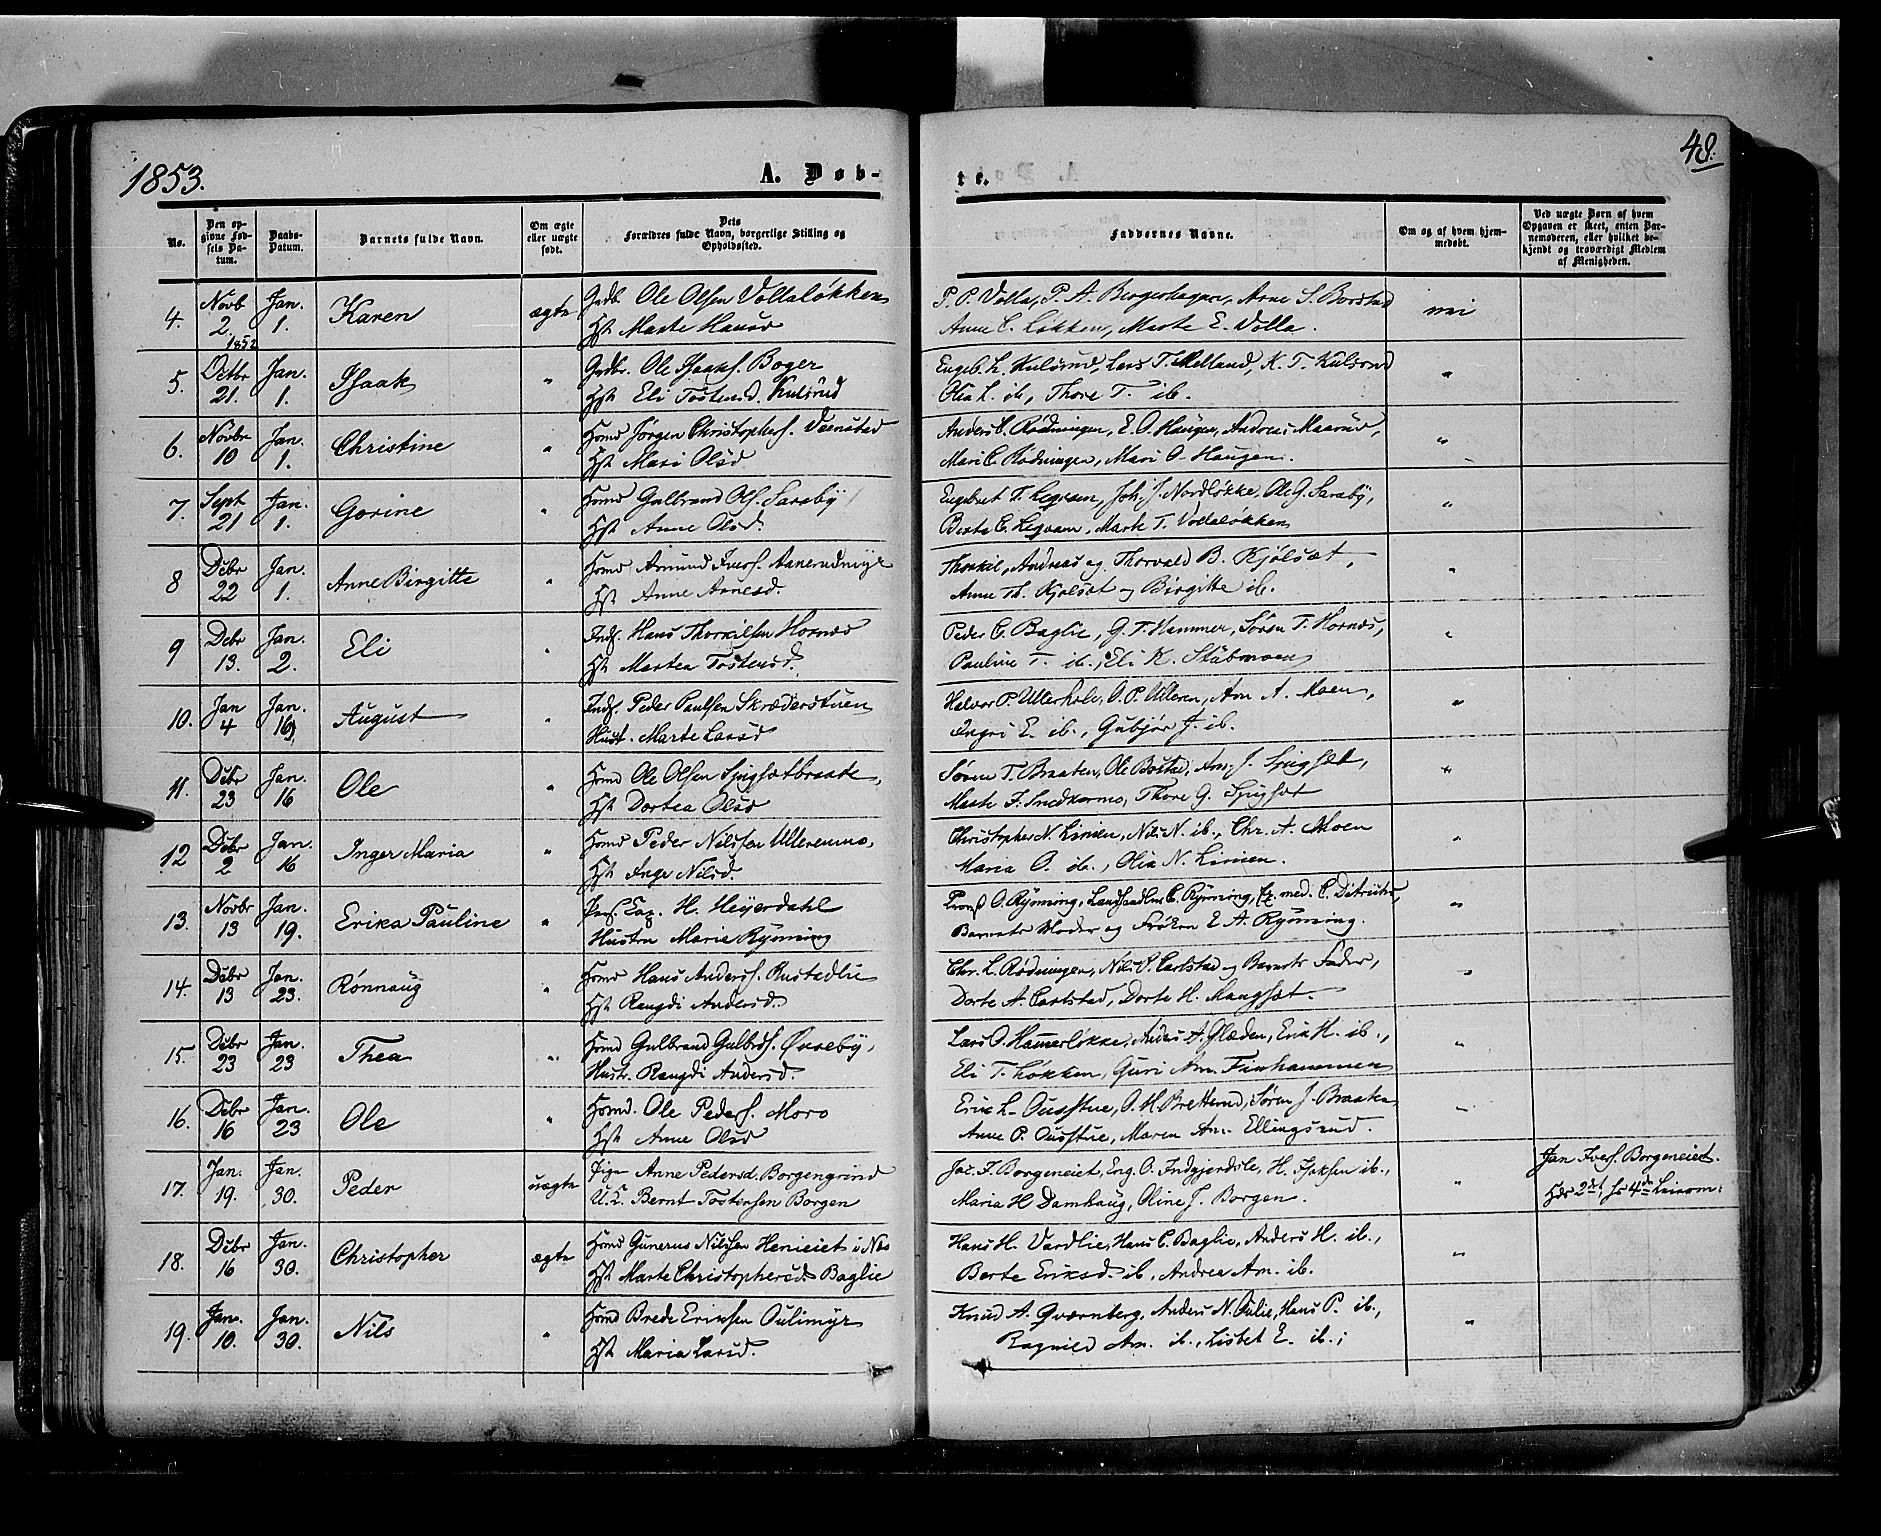 1853.
A. Døb-
te.
48.
No.
Den op-
givne Fød-
sels Da-
tum.
Daabs-
Datum.
Barnets fulde Navn.
Om ægte
eller uægte
født.
Dets
Forældres fulde Navn, borgerlige Stilling og
Opholdssted.
Faddernes Navne.
Om og af hvem hjem-
medøbt.
Ved uægte Børn af hvem
Opgaven er skeet, enten Bar-
nemoderen, eller hvilket be-
kjendt og troværdigt Medlem
af Menigheden.
4. Novb 2. 1852 Jan. 1. Karen ægte
Grdb. Ole Olsen Vollaløkken
Hst Marte Hansd
P. P. Volla, P. A. Borgerhagen, Arne S. Borstad
Anne C. Løkken, Marte E. Volla.
nei
5. Octbr 21. Jan. 1. Isaak "
Grdbr. Ole Isaaks. Boger
Hst Eli Tostensd. Kulsrud
Engeb. L. Kulsrud, Lars T. Melland, K. T. Kulsrud
Olea L. ib, Thore T. ib.
"
6. Novbr 10 Jan. 1. Christine "
Hsmd Jørgen Christophers. Veenstad
Hst Mari Olsd
Anders C. Rødningen, E. O. Haugen, Andreas Maarud,
Mari C. Rødningen, Mari O. Haugen.
"
7. Sept 21 Jan. 1. Gorine "
Hsmd Gulbrand Ols. Saraby
Hst Anne Olsd.
Engebret T. Legvam, Joh. J. Nordløkke, Ole G. Saraby,
Berte C. Legvam, Marte T. Vollaløkken
"
8 Debr 22 Jan. 1. Anne Birgitte "
Hsmd Amund Ivers. Aanerudmyr
Hst Anne Arnesd.
Thorkil, Andreas og Thorvald B. Kjølsæt,
Anne Th. Kjølsæt og Birgitte ib.
"
9 Debr 13. Jan. 2. Eli "
Inds. Hans Thorkilsen Hornæs
Hst Martea Tostensd.
Peder C. Baglie, G. T. Hammer, Søren T. Hornæs,
Pauline T. ib., Eli K. Stubmoen
"
10. Jan 4 Jan. 16 August "
Inds. Peder Paulsen Skræderstuen
Hust. Marte Larsd
Halvor P. Ullerhole, O. P. Ulleren, Arn A. Moen,
Ingri E. ib., Gubjør J. ib.
"
11. Debr 23 Jan. 16 Ole "
Hsmd Ole Olsen Sjugsætbraate,
Hst Dortea Olsd
Søren T. Braaten, Ole Bostad, Arn. J. Sjugsæt,
Marte F. Snedkermo, Thore G. Sjugsæt
"
12 Debr 2 Jan. 16 Inger Maria "
Hsmd Peder Nilssen Ullerenmo,
Hst Inge Nilsd.
Christopher N. Linien, Nils N. ib., Chr. A. Moen
Maria O. ib., Olia N. Linien.
"
13. Novbr 13 Jan. 19. Erika Pauline "
Pers. Cap. H. Heyerdahl
Hustru Marie Rynning
Provst O. Rynning, Landhandler C. Rynning, Ex. med. C. Ditrichs,
Barnets Moder og Frøken E. A. Rynning.
"
14. Debr 13 Jan. 23. Rønnaug "
Hsmd Hans Anders. Rustadlie
Hst Rangdi Andersd.
Chr. L. Rødningen, Nils P. Carlstad og Barnets Fader,
Dorte A. Carlstad, Dorte H. Mangsæt.
"
15. Debr 23 Jan. 23 Thea "
Hsmd Gulbrand Gulbrds. Øvreby,
Hustr. Rangdi Andersd.
Lars O. Hamerløkke, Anders A. Glæden, Erik H. ib.,
Eli T. Løkken, Guri Arn. Finhammer
"
16. Debr 16 Jan. 23 Ole "
Hsmd. Ole Peders. Moro
Hst Anne Olsd
Erik L. Ousstue, O. H. Bretterud, Søren J. Braate,
Anne P. Ousstue, Maren Arn. Ellingsrud.
"
17. Jan. 19. Jan. 30. Peder uægte
Pige Anne Pedersd. Borgengrind
U.K. Bernt Tostensen Borgen
Jac. F. Borgeneiet, Eng. O. Indgjerdsle, H. Isaksen ib.,
Maria H. Damhaug, Oline J. Borgen.
"
Jan Ivers. Borgeneiet.
Hds 2det, hs 4de Leierm:
18. Debr 16 Jan. 30. Christopher ægte
Hsmd Gunerus Nilssen Henieiet i Næs
Hst Marte Christophersd. Baglie
Hans H. Vardlie, Hans C. Baglie, Anders H. ib.,
Berte Eriksd. ib, Andrea Am. ib.
"
19. Jan. 10. Jan. 30. Nils "
Hsmd Brede Eriksen Oulimyr
Hst Maria Larsd.
Knud A. Qværnberg, Anders N. Oulie, Hans P. ib.,
Ragnild Am. ib., Lisbet E. ib.;
"